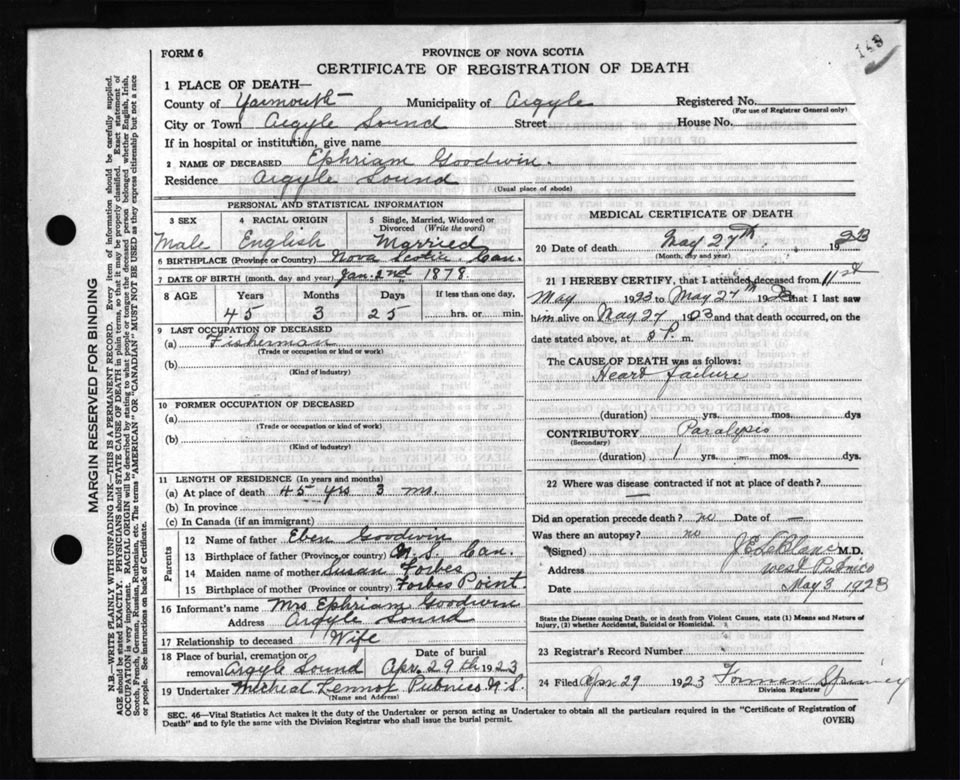 148
FORM 6
PROVINCE OF NOVA SCOTIA
CERTIFICATE OF REGISTRATION OF DEATH
1 PLACE OF DEATH—
County of Yarmouth Municipality of Argyle Registered No.
(For use of Registrar General only)
City or Town Argyle Sound Street House No.
If in hospital or institution, give name
2 NAME OF DECEASED Ephriam Goodwin.
Residence Argyle Sound
(Usual place of abode)
PERSONAL AND STATISTICAL INFORMATION
3 SEX 4 RACIAL ORIGIN 5 Single, Married, Widowed or
Divorced (Write the word)
Male English Married
6 BIRTHPLACE (Province or Country) Nova Scotia. Can.
7 DATE OF BIRTH (month, day and year) Jan. 2nd 1878.
8 AGE Years Months Days If less than one day,
45 3 25 hrs. or min.
9 LAST OCCUPATION OF DECEASED
(a) Fisherman
(Trade or occupation or kind or work)
(b)
(Kind of industry)
10 FORMER OCCUPATION OF DECEASED
(a)
(Trade or occupation or kind of work)
(b)
(Kind of industry)
11 LENGTH OF RESIDENCE (In years and months)
(a) At place of death 45 yrs 3 m.
(b) In province
(c) In Canada (if an immigrant)
Parents
12 Name of father Eben Goodwin
13 Birthplace of father (Province or country) N.S. Can.
14 Maiden name of mother Susan Forbes
15 Birthplace of mother (Province or country) Forbes Point.
16 Informant's name Mrs Ephriam Goodwin
Address Argyle Sound
17 Relationship to deceased Wife
18 Place of burial, cremation or Date of burial
removal Argyle Sound Apr. 29th 1923
19 Undertaker Micheal Lennox Pubnico N.S.
(Name and Address)
MEDICAL CERTIFICATE OF DEATH
20 Date of death May 27th, 1923
(Month, day and year)
21 I HEREBY CERTIFY, that I attended deceased from 11st
May 1923 to May 27th 1923 that I last saw
him alive on May 27 1923 and that death occurred, on the
date stated above, at P. m.
The CAUSE OF DEATH was as follows:
Heart failure
(duration) yrs. mos. dys
CONTRIBUTORY Paralysis
(Secondary)
(duration) 1 yrs. – mos. dys.
22 Where was disease contracted if not at place of death?
—
Did an operation precede death? no Date of —
Was there an autopsy? no
(Signed) LeBlanc M.D.
Address West Pubnico
Date May 3 1923
State the Disease causing Death, or in death from Violent Causes, state (1) Means and Nature of
Injury, (2) whether Accidental, Suicidal or Homicidal.
23 Registrar's Record Number
24 Filed Apr 29 1923 Spinney
Division Registrar
SEC. 46—Vital Statistics Act makes it the duty of the Undertaker or person acting as Undertaker to obtain all the particulars required in the "Certificate of Registration of
Death" and to fyle the same with the Division Registrar who shall issue the burial permit.
(OVER)
MARGIN RESERVED FOR BINDING
N.B—WRITE PLAINLY WITH UNFADING INK—THIS IS A PERMANENT RECORD. Every item of information should be carefully supplied.
AGE should be stated EXACTLY. PHYSICIANS should STATE CAUSE OF DEATH in plain terms, so that it may be properly classified. Exact statement of
OCCUPATION is very important. RACIAL ORIGIN will be described by stating to what people or tongue the deceased person belonged whether English, Irish,
Scotch, French, German, Russian, Ruthenian, etc. The terms "AMERICAN" OR "CANADIAN" MUST NOT BE USED as they express citizenship but not a race
or people. See instructions on back of Certificate.